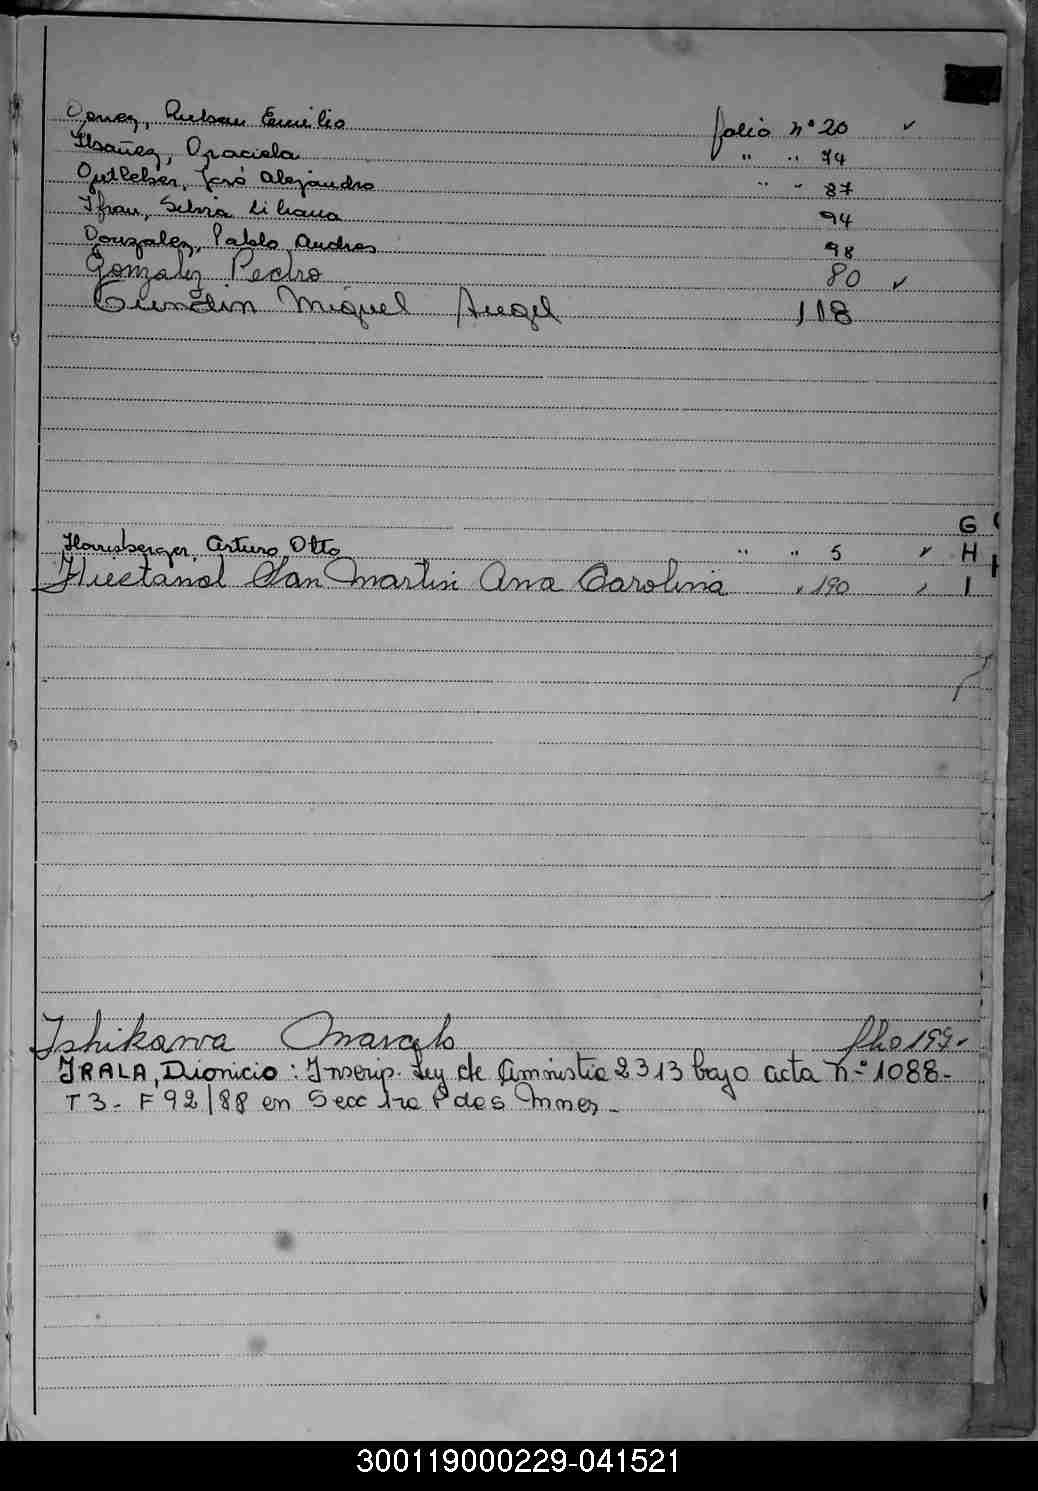 Gomez, Ruben Emilio folio nº 20 ✓
Ibañez, Graciela " " 74
Gutleber, José Alejandro " " 87
Ifran, Silvia Liliana 94
Gonzalez, Pablo Andres 98
Gonzalez Pedro 80 ✓
Miguel Angel 118
G
Harrisberger, Arturo Otto " " 5 ✓ H
San Martin Ana Carolina " 190 ✓ I
Ishikawa Marcelo flio 199-
IRALA, Dionicio: Inscrip. Ley de Amnistia 2313 bajo acta nº 1088-
T 3- F 92/88 en Secc 1ra Pdas Mnes-
300119000229-041521